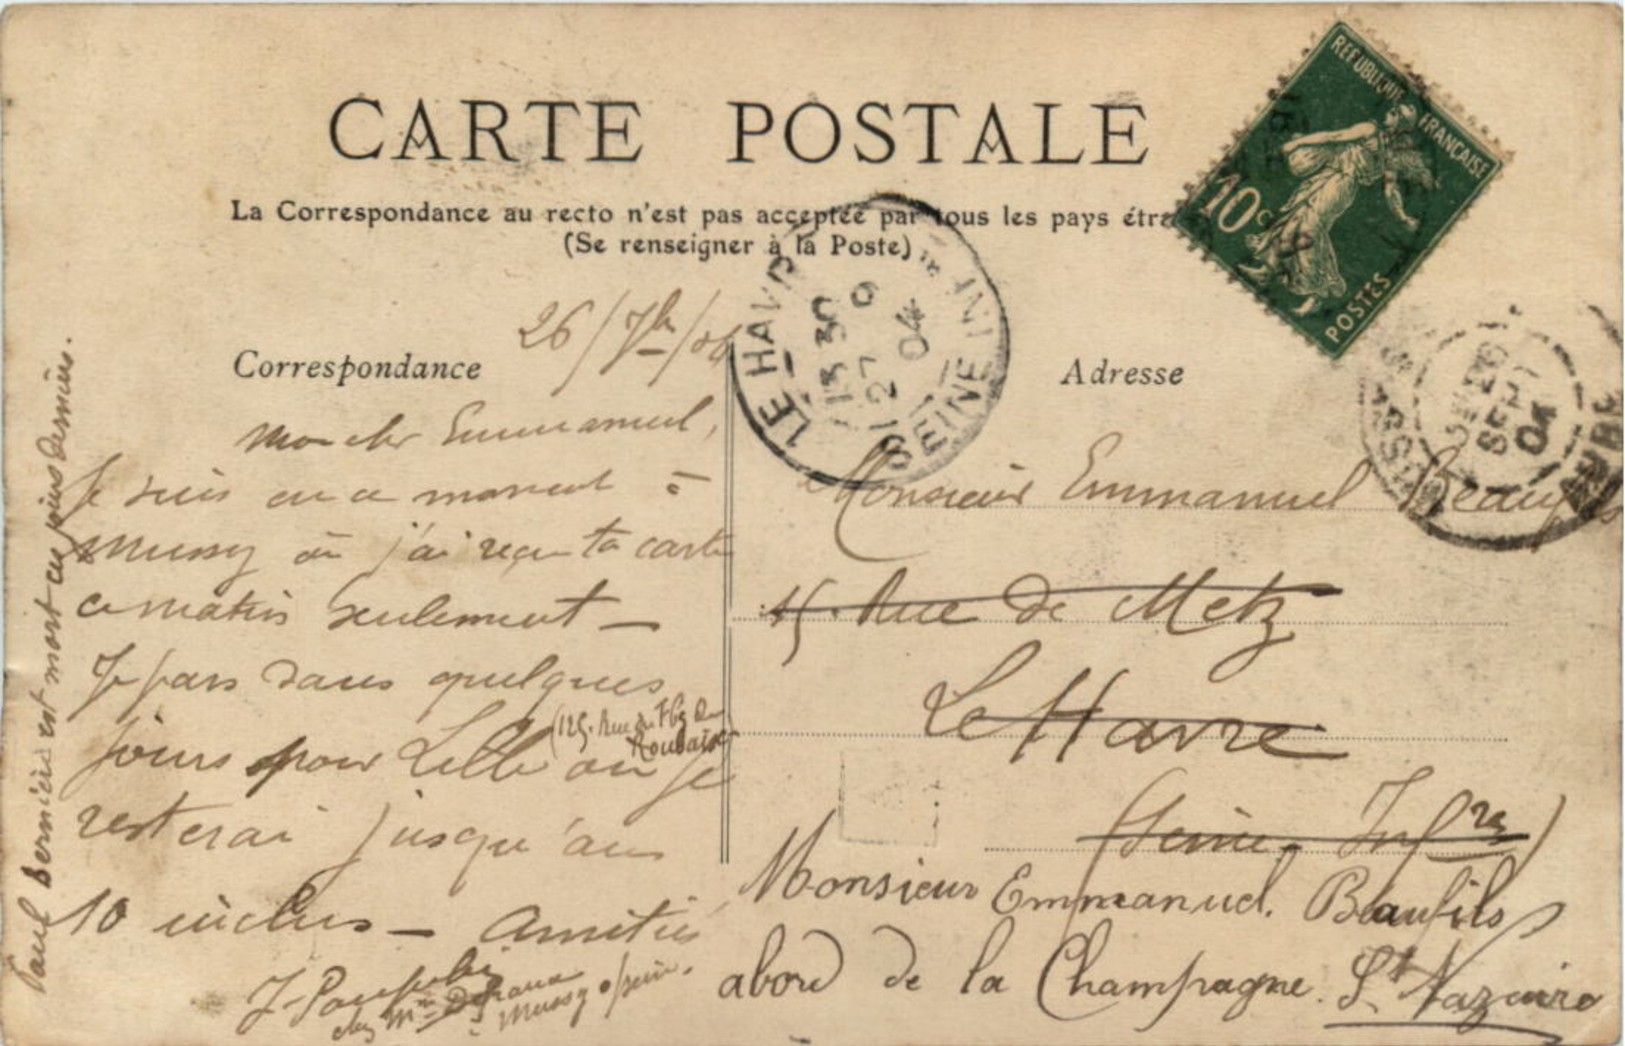 CARTE POSTALE
La Correspondance au recto n'est pas acceptée par tous les pays étra
(Se renseigner à la Poste)
REPUBLIQUE FRANÇAISE
10c
POSTES
LE HAVRE
SEINE INF
27
04
Correspondance
Adresse
26/7bre/
Mon cher Emmanuel,
Je suis en ce moment à
Mussy où j'ai reçu ta carte
ce matin seulement —
Je pars dans quelques
jours pour Lille où je
(125. Rue du Fbg de
Roubaix)
resterai jusqu'au
10 inclus — Amitiés
chez Mme
Mussy s/ Seine.
Paul Bernier est mort en juin dernier.
Monsieur Emmanuel Beaufils
15. Rue de Metz
Le Havre
(Seine-Infre)
Monsieur Emmanuel. Beaufils
abord de la Champagne. St Nazaire